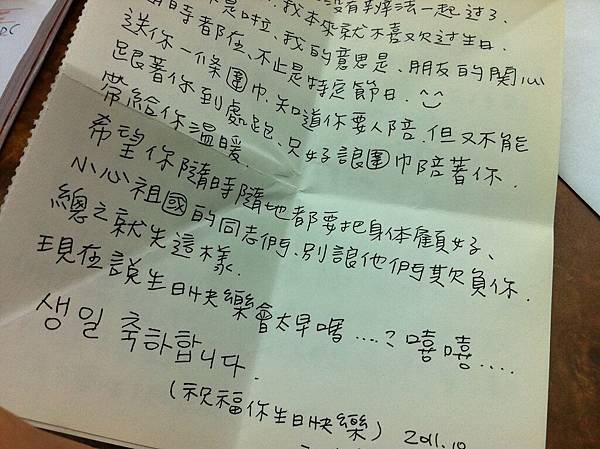 沒有辦法一起过了、
我本來就不喜欢过生日、
是啦、我的意思是、朋友的關心
時都在、不止是特定節日.
送你一條圍巾、知道你要人陪.但又不能
跟著你到處跑、只好讓圍巾陪著你.
帶給你溫暖.
希望你隨時隨地都要把身体顧好、
小心祖國的同志們、別讓他們欺負你.
總之就先這樣.
現在說生日快樂會太早嗎....?嘻嘻.....
생일 축하합니다.
(祝福你生日快樂) 2011.10